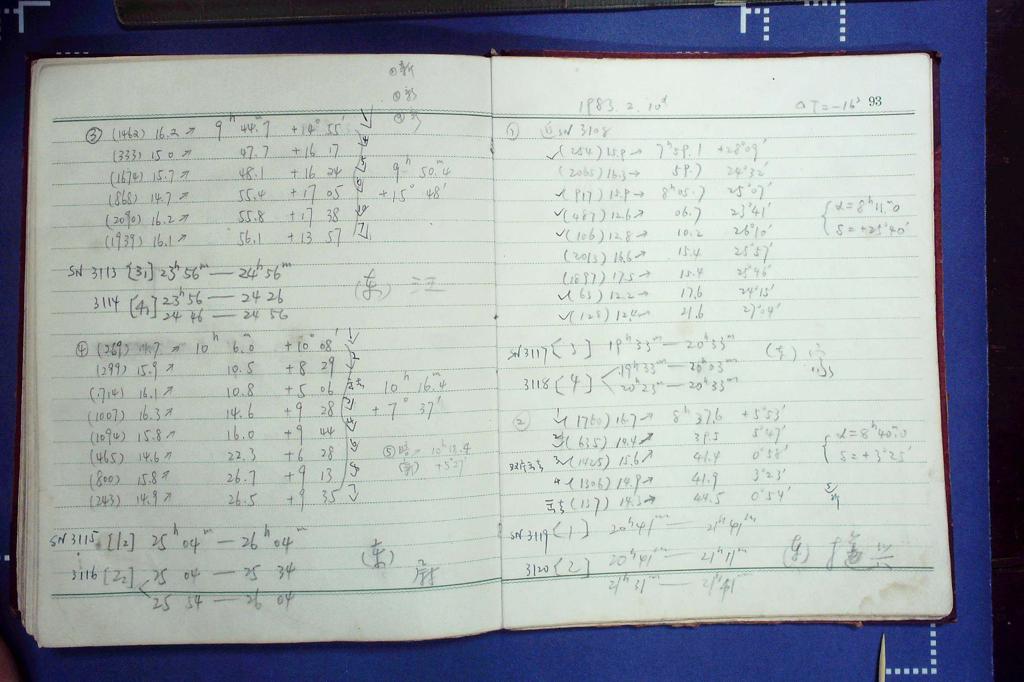 ③ (1462) 16.2↗ 9ʰ 44ᵐ.7 +14° 55′
(333) 15.0↗ 47.7 +16 17
(1674) 15.7↗ 48.1 +16 24
9ʰ 50ᵐ.4
(568) 14.7↗ 55.4 +17 05
+15° 48′
(2090) 16.2↗ 55.8 +17 38
(1939) 16.1↗ 56.1 +13 57
SN 3113 [3₁] 23ʰ56ᵐ — 24ʰ56ᵐ
(东) 汪
3114 [4₁] 23 56 — 24 26
24 46 — 24 56
④ (269) 14.7↗ 10ʰ 6.ᵐ0 +10° 08′
(299) 15.9↗ 10.5 +8 29
(714) 16.1↗ 10.8 +5 06
10ʰ 16ᵐ.4
(1007) 16.3↗ 14.6 +9 28
+7° 37′
(1094) 15.8↗ 16.0 +9 44
(465) 14.6↗ 22.3 +6 28
(800) 15.8↗ 26.7 +9 13
(243) 14.9↗ 26.5 +9 35
SN 3115 [1₂] 25ʰ 04ᵐ — 26ʰ 04ᵐ
(东)
3116 [2₂] 25 04 — 25 34
25 54 — 26 04
1983.2.10ᵈ ΔT=−16ˢ 93
① SN 3108
✓(254) 15.9→ 7ʰ59.1 +28°09′
(2065) 16.3→ 59.7 24°32′
✓(917) 15.9→ 8ʰ05.7 25°07′
✓(487) 12.6→ 06.7 23°41′
α=8ʰ11ᵐ.0
✓(106) 12.8→ 10.2 26°10′
δ=+25°40′
(2013) 16.6→ 15.4 25°57′
(1897) 17.5→ 15.4 25°46′
✓(65) 12.2→ 17.6 24°15′
✓(128) 12.4→ 21.6 27°04′
SN3117 [3] 19ʰ33ᵐ — 20ʰ33ᵐ
(东)
3118 [4] 19ʰ33ᵐ — 20ʰ03ᵐ
20ʰ23ᵐ — 20ʰ33ᵐ
② (1760) 16.7→ 8ʰ37.6 +5°53′
(635) 14.4→ 39.5 5°47′
α=8ʰ40ᵐ.0
(1425) 15.6→ 41.4 0°58′
δ=+3°25′
(1306) 14.9→ 41.9 3°23′
(137) 14.3→ 44.5 0°54′
SN3119 [1] 20ʰ41ᵐ — 21ʰ41ᵐ
(东)
3120 [2] 20ʰ41ᵐ — 21ʰ11ᵐ
21ʰ31ᵐ — 21ʰ41ᵐ